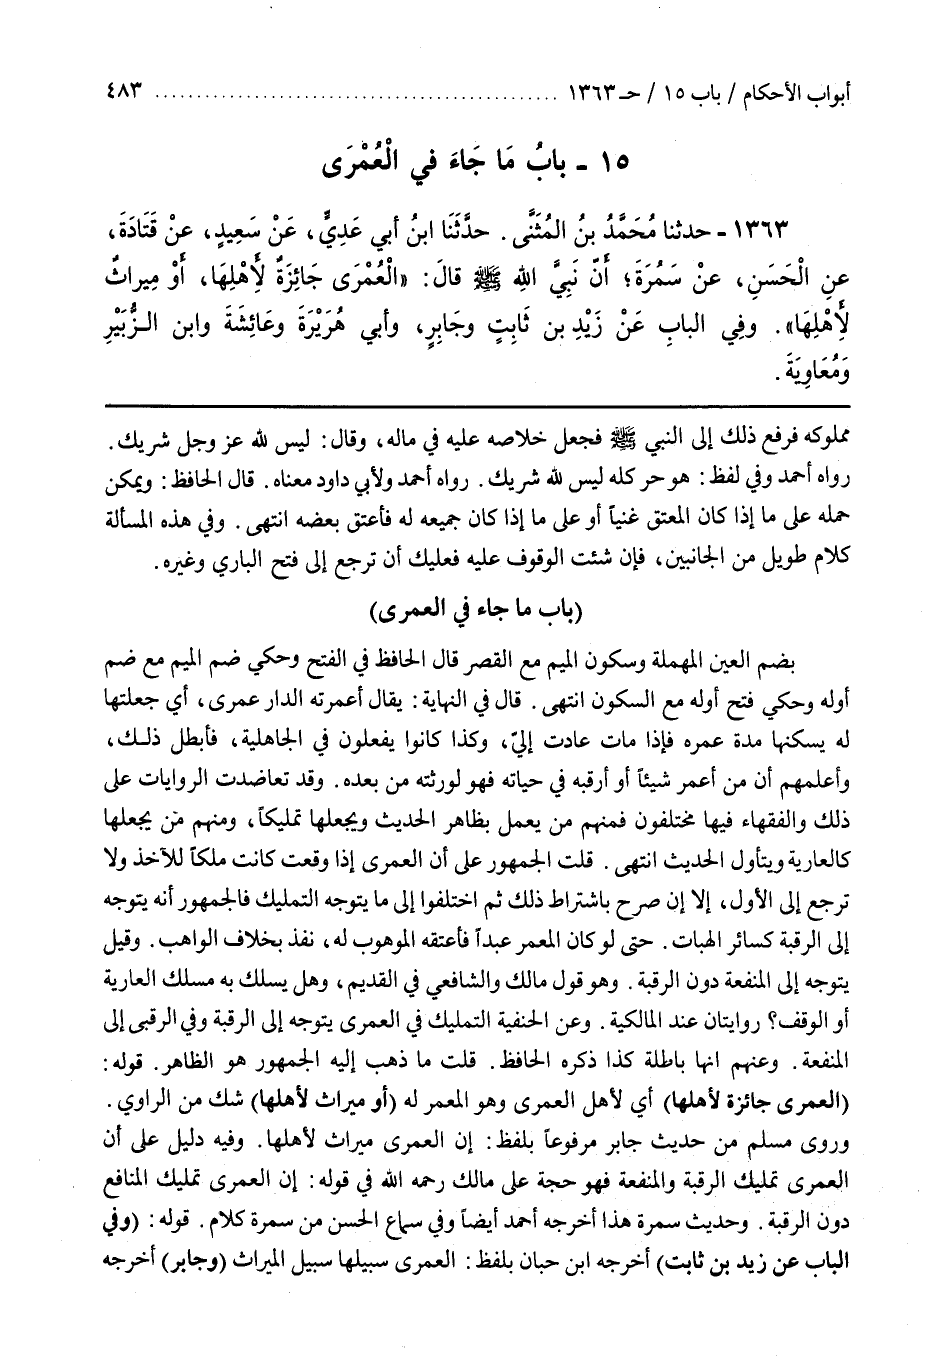 أبواب الأحكام / باب ١٥ / حـ ١٣٦٣ ................................................ ٤٨٣
١٥ - بابُ مَا جَاءَ في الْعُمْرَى
١٣٦٣ - حدثنا مُحَمَّدُ بنُ المُثَنَّى. حدَّثَنَا ابنُ أبي عَدِيٍّ، عَنْ سَعِيدٍ، عنْ قَتَادَةَ،
عنِ الْحَسَنِ، عنْ سَمُرَةَ؛ أَنّ نَبِيَّ اللهِ ﷺ قالَ: «الْعُمْرَى جَائِزَةٌ لأِهْلِهَا، أَوْ مِيراثٌ
لأِهْلِهَا». وفِي البابِ عَنْ زَيْدِ بن ثَابتٍ وجَابرٍ، وأبي هُرَيْرَةَ وعَائِشَةَ وابن الـزُّبَيْرِ
وَمُعَاوِيَةَ.
مملوكه فرفع ذلك إلى النبي ﷺ فجعل خلاصه عليه في ماله، وقال: ليس لله عز وجل شريك.
رواه أحمد وفي لفظ: هو حر كله ليس لله شريك. رواه أحمد ولأبي داود معناه. قال الحافظ: ويمكن
حمله على ما إذا كان المعتق غنياً أو على ما إذا كان جميعه له فأعتق بعضه انتهى. وفي هذه المسألة
كلام طويل من الجانبين، فإن شئت الوقوف عليه فعليك أن ترجع إلى فتح الباري وغيره.
(باب ما جاء في العمرى)
بضم العين المهملة وسكون الميم مع القصر قال الحافظ في الفتح وحكي ضم الميم مع ضم
أوله وحكي فتح أوله مع السكون انتهى. قال في النهاية: يقال أعمرته الدار عمرى، أي جعلتها
له يسكنها مدة عمره فإذا مات عادت إليّ، وكذا كانوا يفعلون في الجاهلية، فأبطل ذلـك،
وأعلمهم أن من أعمر شيئاً أو أرقبه في حياته فهو لورثته من بعده. وقد تعاضدت الروايات على
ذلك والفقهاء فيها مختلفون فمنهم من يعمل بظاهر الحديث ويجعلها تمليكاً، ومنهم من يجعلها
كالعارية ويتأول الحديث انتهى. قلت الجمهور على أن العمرى إذا وقعت كانت ملكاً للآخذ ولا
ترجع إلى الأول، إلا إن صرح باشتراط ذلك ثم اختلفوا إلى ما يتوجه التمليك فالجمهور أنه يتوجه
إلى الرقبة كسائر الهبات. حتى لو كان المعمر عبداً فأعتقه الموهوب له، نفذ بخلاف الواهب. وقيل
يتوجه إلى المنفعة دون الرقبة. وهو قول مالك والشافعي في القديم، وهل يسلك به مسلك العارية
أو الوقف؟ روايتان عند المالكية. وعن الحنفية التمليك في العمرى يتوجه إلى الرقبة وفي الرقبى إلى
المنفعة. وعنهم انها باطلة كذا ذكره الحافظ. قلت ما ذهب إليه الجمهور هو الظاهر. قوله:
(العمرى جائزة لأهلها) أي لأهل العمرى وهو المعمر له (أو ميراث لأهلها) شك من الراوي.
وروى مسلم من حديث جابر مرفوعاً بلفظ: إن العمرى ميراث لأهلها. وفيه دليل على أن
العمرى تمليك الرقبة والمنفعة فهو حجة على مالك رحمه الله في قوله: إن العمرى تمليك المنافع
دون الرقبة. وحديث سمرة هذا أخرجه أحمد أيضاً وفي سماع الحسن من سمرة كلام. قوله: (وفي
الباب عن زيد بن ثابت) أخرجه ابن حبان بلفظ: العمرى سبيلها سبيل الميراث (وجابر) أخرجه